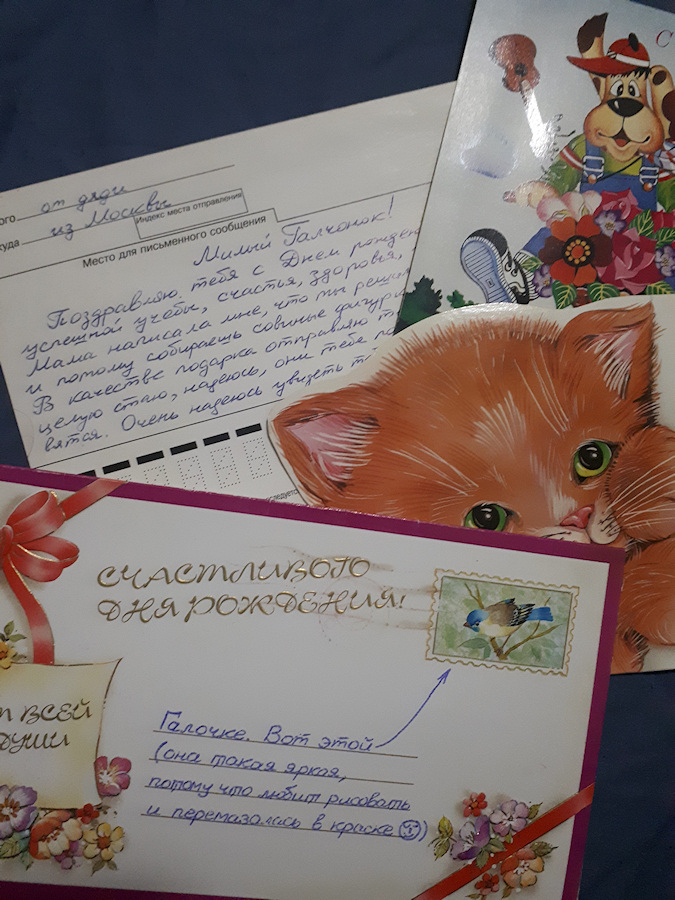 от дяди
из Москвы
Индекс места отправления
Место для письменного сообщения
Милый Галчонок!
Поздравляю тебя с Днем рожден
успешной учебы, счастья, здоровья,
Мама написала мне, что ты решил
и потому собираешь совиные фигур
В качестве подарка отправляю т
целую стаю, надеюсь, они тебе по
вятся. Очень надеюсь увидеть т
С
СЧАСТЛИВОГО
ДНЯ РОЖДЕНИЯ!
ВСЕЙ
ДУШИ
Галочке. Вот этой
(она такая яркая,
потому что любит рисовать
и перемазалась в краске ☺))